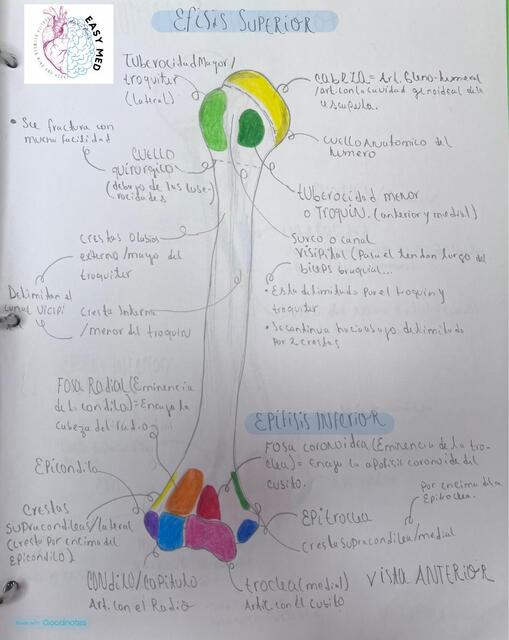 EFISIS SUPERIOR
EASY MED
Tuberocidad Mayor/
troquiter
(lateral)
CABEZA = Art. Gleno-humeral
/art. con la cavidad
escapula.
• See fractura con
mucha facilidad
CUELLO
quirurgico
(debajo de las tube-
rocidades
CUELLO Anatomico del
humero
tuberocidad menor
o TROQUIN. (anterior y medial)
surco o canal
VISIPITAL (Pasa el tendon largo del
biceps braquial...
crestas o labios
externo/mayo del
troquiter
• Esta delimitado por el troquin y
troquiter
• Se continua hacia abajo delimitado
por 2 crestas
Delimitan el
canal VICIPI
Cresta Interna
/menor del troquin
FOSA Radial (Eminencia
de lo condilo) = Encaja la
cabeza del radio
EPIFISIS INFERIOR
FOSA coronoidea (Eminencia de la tro-
clea) = Encaja la apofisis coronoide del
cusito.
Epicondilo
por encima de la
Epitroclea.
Crestas
supracondileas/lateral
(cresta por encima del
Epicondilo)
Epitroclea
Cresta supracondilea/medial
CONDILO/capitulo
Art. con el Radio
troclea (medial)
Artic. con el cusito
Vista ANTERIOR
Made with Goodnotes